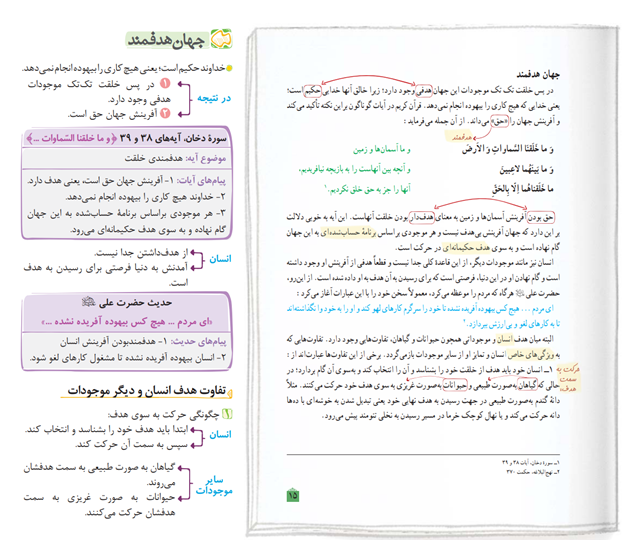 جهان هدفمند
در پس خلقت تک تک موجودات این جهان هدفی وجود دارد؛ زیرا خالق آنها خدایی حکیم است؛
یعنی خدایی که هیچ کاری را بیهوده انجام نمی‌دهد. قرآن کریم در آیات گوناگون بر این نکته تأکید می‌کند
و آفرینش جهان را «حق» می‌داند. از آن جمله می‌فرماید:
هدفمند
وَ ما خَلَقنَا السَّماواتِ وَ الاَرضَ
و ما آسمان‌ها و زمین
وَ ما بَینَهُما لاعِبینَ
و آنچه بین آنهاست را به بازیچه نیافریدیم،
ما خَلَقناهُما اِلّا بِالحَقِّ
آنها را جز به حق خلق نکردیم.¹
حق بودن آفرینش آسمان‌ها و زمین به معنای هدف‌دار بودن خلقت آنهاست. این آیه به خوبی دلالت
بر این دارد که جهان آفرینش بی‌هدف نیست و هر موجودی براساس برنامهٔ حساب‌شده‌ای به این جهان
گام نهاده است و به سوی هدف حکیمانه‌ای در حرکت است.
انسان نیز مانند موجودات دیگر، از این قاعدهٔ کلی جدا نیست و قطعاً هدفی از آفرینش او وجود داشته
است و گام نهادن او در این دنیا، فرصتی است که برای رسیدن به آن هدف به او داده شده است. از این‌رو،
حضرت علی هرگاه که مردم را موعظه می‌کرد، معمولاً سخن خود را با این عبارات آغاز می‌کرد:
ای مردم ... هیچ کس بیهوده آفریده نشده تا خود را سرگرم کارهای لهو کند و او را به خود وا نگذاشته‌اند
تا به کارهای لغو و بی‌ارزش بپردازد.²
البته میان هدف انسان و موجوداتی همچون حیوانات و گیاهان، تفاوت‌هایی وجود دارد. تفاوت‌هایی که
به ویژگی‌های خاص انسان و تمایز او از سایر موجودات بازمی‌گردد. برخی از این تفاوت‌ها عبارت‌اند از:
۱ـ انسان خود باید هدف از خلقت خود را بشناسد و آن را انتخاب کند و به‌سوی آن گام بردارد؛ در
حالی که گیاهان به‌صورت طبیعی و حیوانات به‌صورت غریزی به سوی هدف خود حرکت می‌کنند. مثلاً
دانهٔ گندم به‌صورت طبیعی در جهت رسیدن به هدف نهایی خود یعنی تبدیل شدن به خوشه‌ای با ده‌ها
دانه حرکت می‌کند و یا نهال کوچک خرما در مسیر رسیدن به نخلی تنومند پیش می‌رود.
حرکت به سمت هدف
۱ـ سورهٔ دخان، آیات ۳۸ و ۳۹
۲ـ نهج‌البلاغه، حکمت ۳۷۰
۱۵
جهان هدفمند
خداوند حکیم است؛ یعنی هیچ کاری را بیهوده انجام نمی‌دهد.
در نتیجه
۱ در پس خلقت تک‌تک موجودات
هدفی وجود دارد.
۲ آفرینش جهان حق است.
سورهٔ دخان، آیه‌های ۳۸ و ۳۹ ﴿و ما خلقنا السّماوات ...﴾
موضوع آیه: هدفمندی خلقت
پیام‌های آیات: ۱- آفرینش جهان حق است، یعنی هدف دارد.
۲- خداوند هیچ کاری را بیهوده انجام نمی‌دهد.
۳- هر موجودی براساس برنامهٔ حساب‌شده به این جهان
گام نهاده و به سوی هدف حکیمانه‌ای می‌رود.
انسان
از هدف‌داشتن جدا نیست.
آمدنش به دنیا فرصتی برای رسیدن به هدف
است.
حدیث حضرت علی
«ای مردم ... هیچ کس بیهوده آفریده نشده ...»
پیام‌های حدیث: ۱- هدفمندبودن آفرینش انسان
۲- انسان بیهوده آفریده نشده تا مشغول کارهای لغو شود.
تفاوت هدف انسان و دیگر موجودات
۱ چگونگی حرکت به سوی هدف:
انسان
ابتدا باید هدف خود را بشناسد و انتخاب کند.
سپس به سمت آن حرکت کند.
سایر موجودات
گیاهان به صورت طبیعی به سمت هدفشان
می‌روند.
حیوانات به صورت غریزی به سمت
هدفشان حرکت می‌کنند.